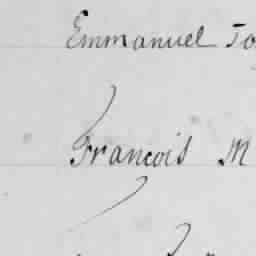 Emmanuel To
Francois M